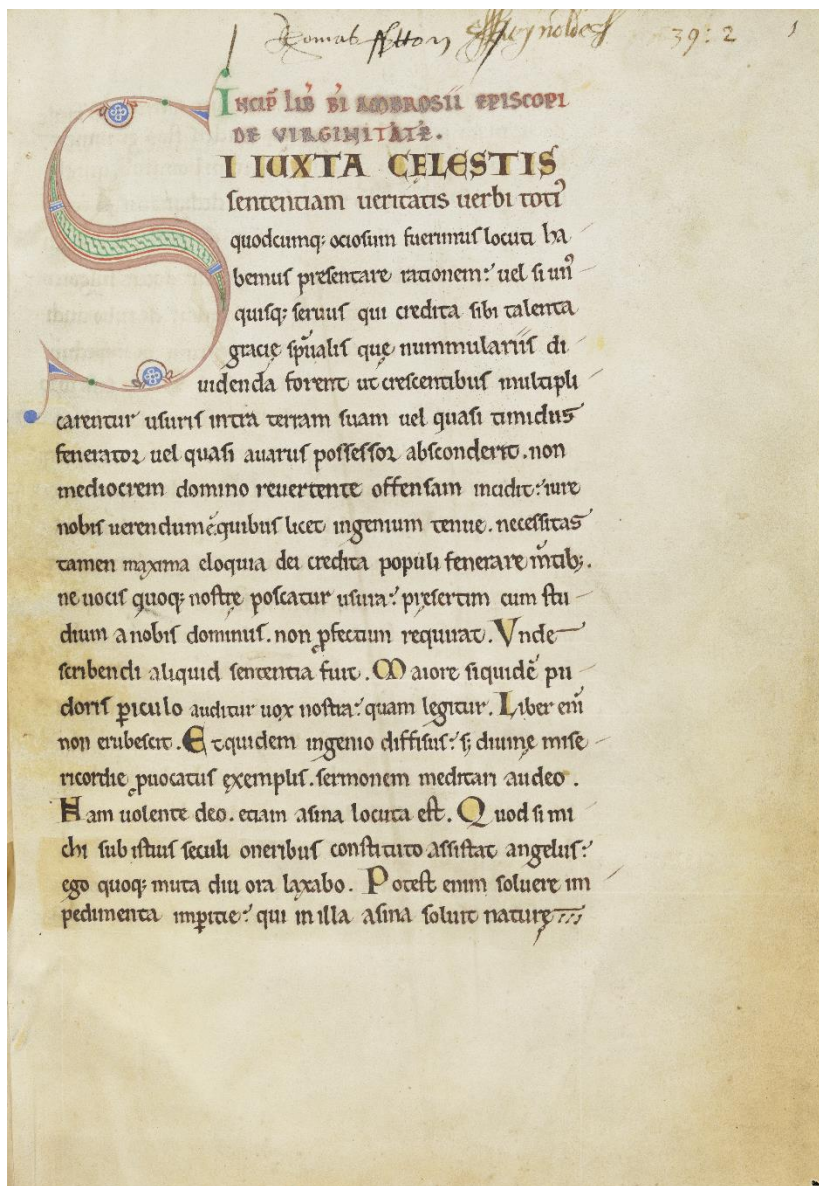 39: 2 1
Incip̄ lib̄ bī ambrosii episcopi
de virginitate.
SI IUXTA CELESTIS
sententiam ueritatis uerbi toti᾽
quodcumq; ociosum fuerimus locuti ha
bemus presentare rationem: uel si un᾽
quisq; seruus qui credita sibi talenta
gracię sp̄ualis que nummulariis di
uidenda forent ut crescentibus multipli
carentur usuris intra terram suam uel quasi timidus
fenerator uel quasi auarus possessor absconderit. non
mediocrem domino reuertente offensam incidit: iure
nobis uerendum ē. quibus licet ingenium tenue. necessitas
tamen maxima eloquia dei credita populi fenerare m̄tib;.
ne uocis quoq; nostrę poscatur usura: presertim cum stu
dium a nobis dominus. non ꝓfectum requirat. Vnde
scribendi aliquid sententia fuit. Maiore siquidē pu
doris ꝑiculo auditur uox nostra: quam legitur. Liber eni᷒
non erubescit. Et quidem ingenio diffisus: s; diuine mise
ricordie ꝓuocatus exemplis. sermonem meditari audeo.
Nam uolente deo. etiam asina locuta est. Quod si mi
chi sub istius seculi oneribus constituto assistat angelus:
ego quoq; muta diu ora laxabo. Potest enim soluere im
pedimenta imꝑitie: qui in illa asina soluit naturę